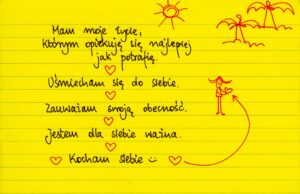 Mam moje życie,
którym opiekuję się najlepiej
jak potrafię.
Uśmiecham się do siebie.
Zauważam swoją obecność.
jestem dla siebie ważna.
Kocham siebie